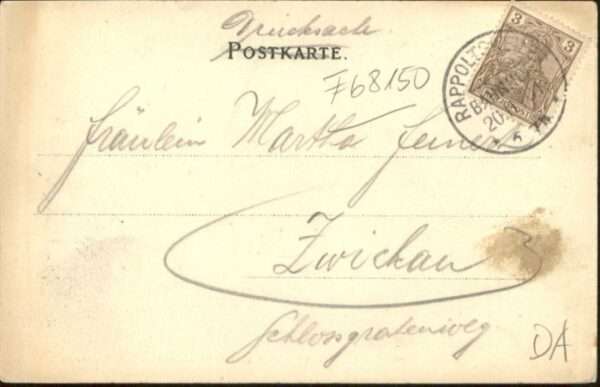 Drucksache
POSTKARTE.
F68150
3 3
RAPPOLTS
BAHNH
20
Fräulein Martha
Zwickau
Schlossgrabenweg
DA